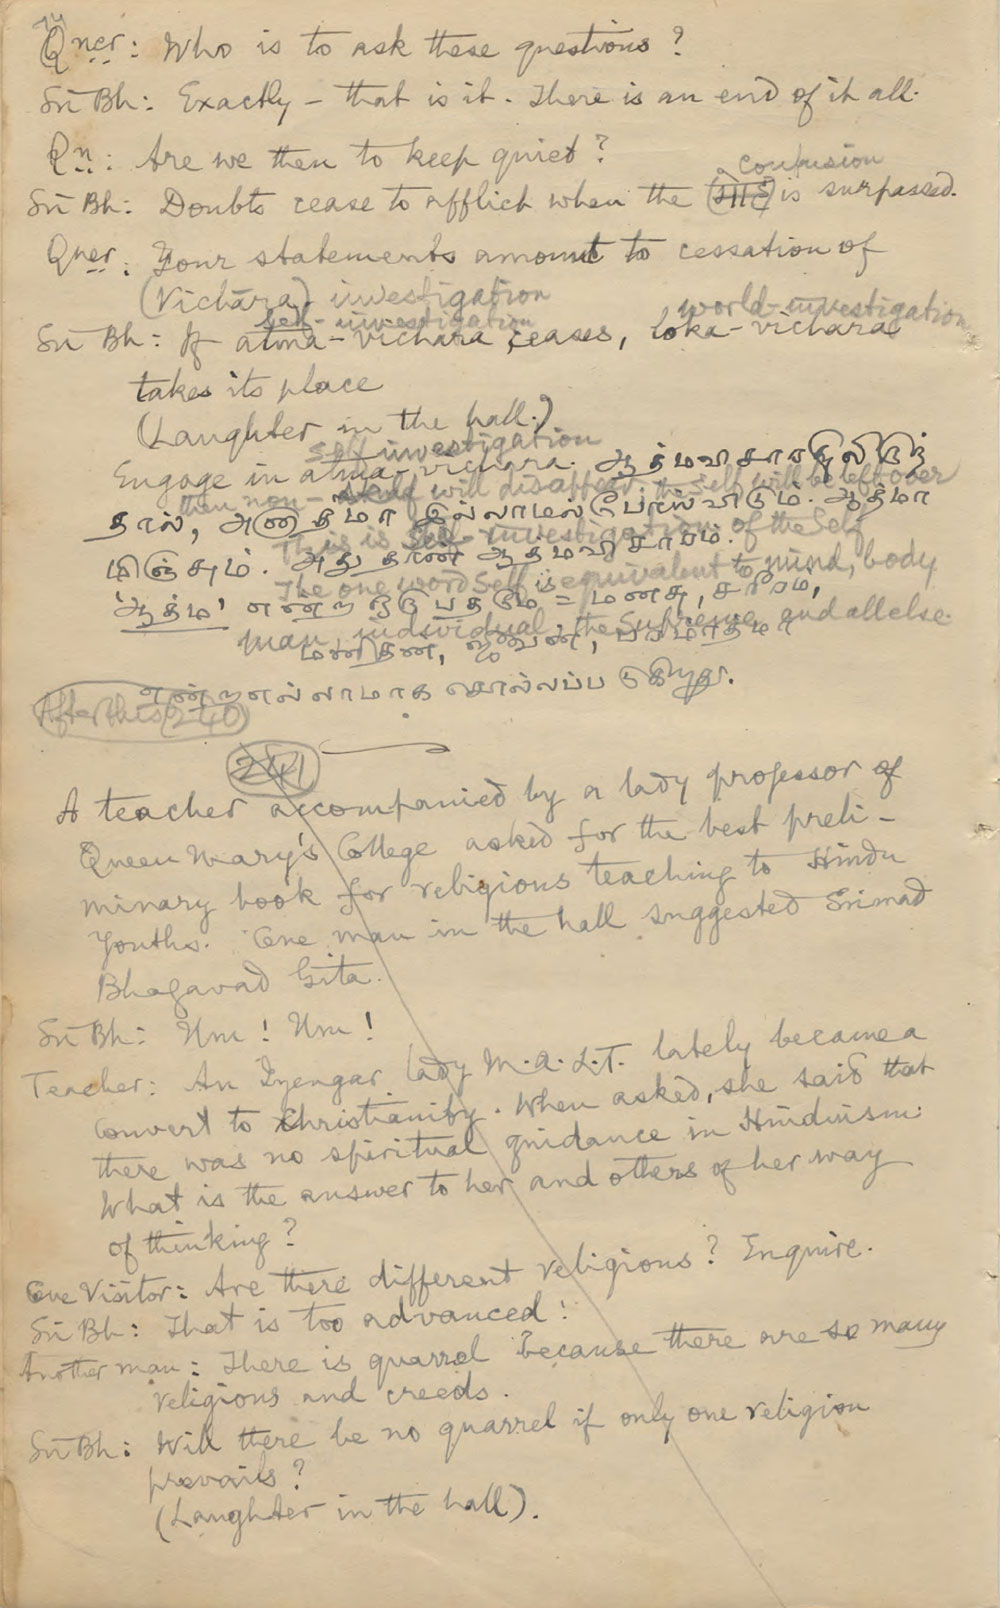 Qner: Who is to ask these questions?
Sri Bh: Exactly – that is it. There is an end of it all.
Qn: Are we then to keep quiet?
confusion
Sri Bh: Doubts cease to afflict when the (मोह) is surpassed.
Qner: Your statements amount to cessation of
(Vichāra) investigation
self-investigation world-investigation
Sri Bh: If atma-vichara ceases, loka-vichara
takes its place
(Laughter in the hall.)
Self investigation
Engage in atma-vichara. ஆத்மவிசாரத்திலிருந்
then non-self will disappear, the Self will be left over
தால், அனாத்மா இல்லாமல் போய்விடும். ஆத்மா
This is Self-investigation of the Self
மிஞ்சும். அது தான் ஆத்மவிசாரம்.
The one word Self is equivalent to mind, body
'ஆத்மா' என்ற ஒரு பதமே = மனசு, சரீரம்,
man, individual, the Supreme and all else.
மனிதன், ஜீவன், பரமாத்மா
என்று எல்லாமாக சொல்லப்படுகிறது.
After this 240
241
A teacher accompanied by a lady professor of
Queen Mary's College asked for the best preli-
minary book for religious teaching to Hindu
Youths. One man in the hall suggested Srimad
Bhagavad Gita.
Sri Bh: Um! Um!
Teacher: An Iyengar lady M.A.L.T. lately became a
convert to Christianity. When asked, she said that
there was no spiritual guidance in Hinduism.
What is the answer to her and others of her way
of thinking?
One Visitor: Are there different religions? Enquire.
Sri Bh: That is too advanced!
Another man: There is quarrel because there are so many
religions and creeds.
Sri Bh: Will there be no quarrel if only one religion
prevails?
(Laughter in the hall).